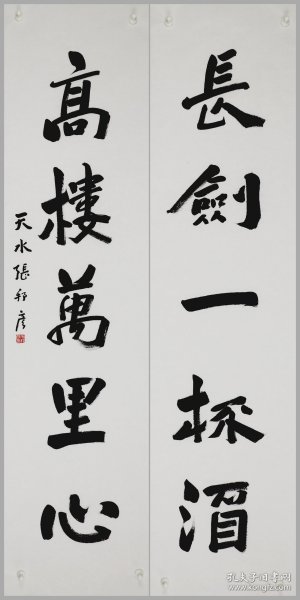 長劍一杯酒
高樓萬里心
天水張邦彥
孔夫子旧书网
www.kongfz.com